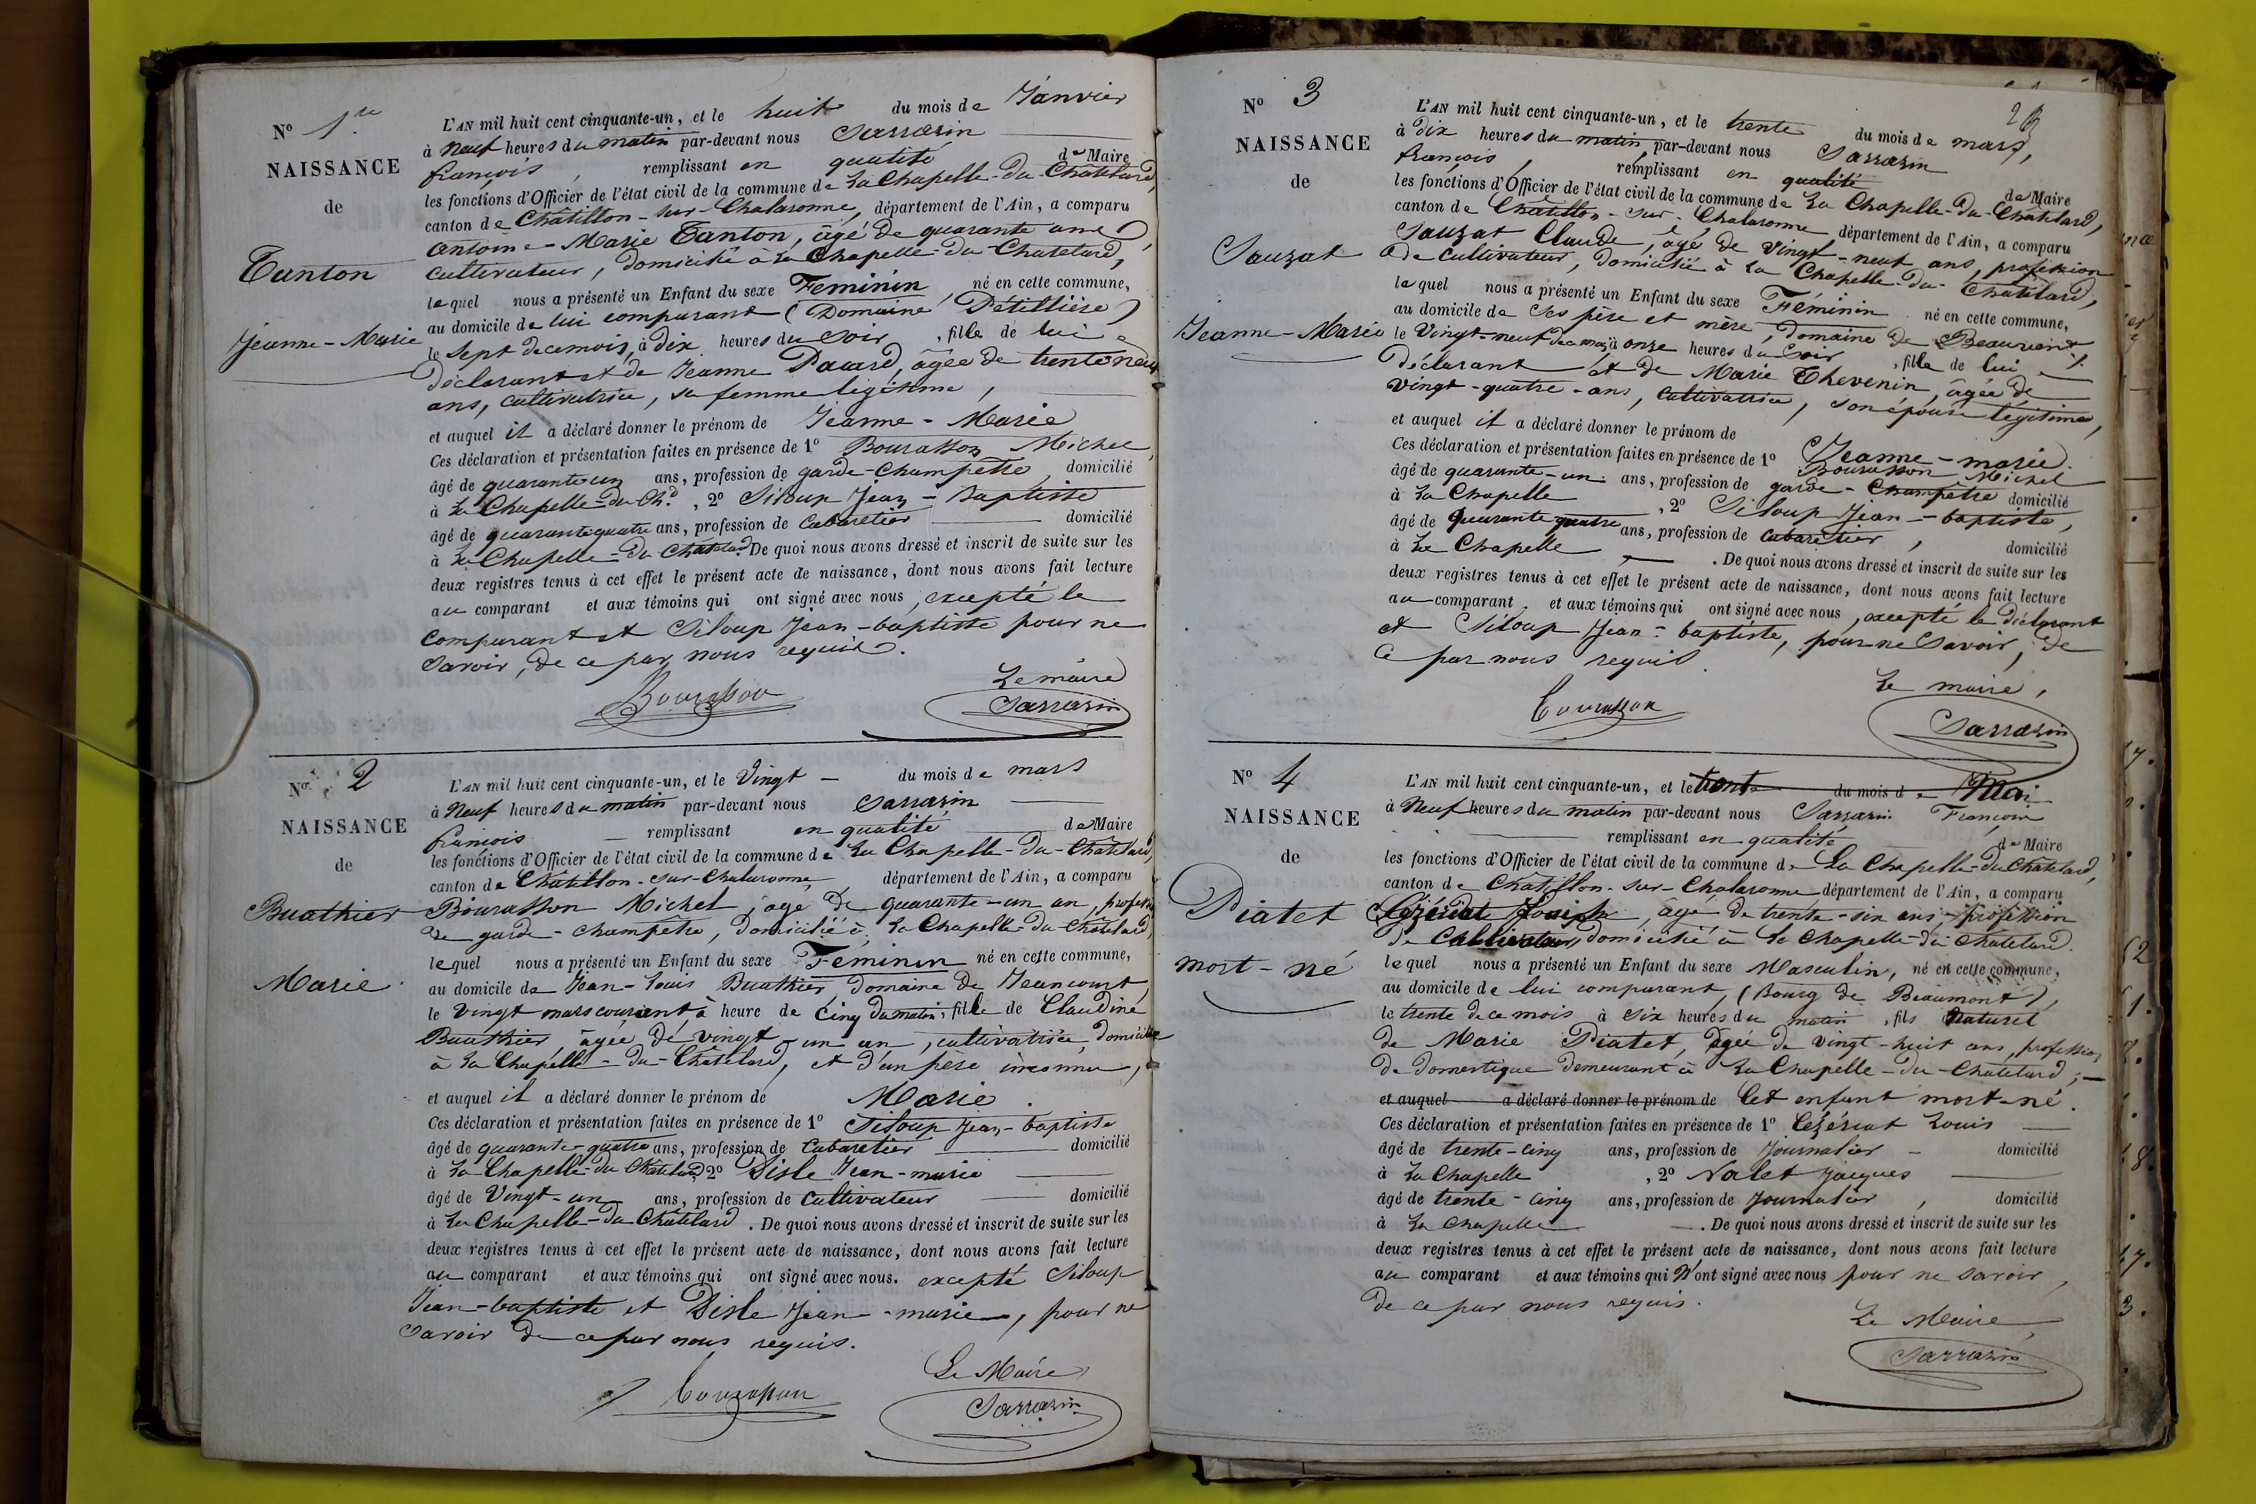 N° 1.re
NAISSANCE
de
Tanton
Jeanne-Marie
L'AN mil huit cent cinquante-un, et le huit du mois de Janvier
à Neuf heures du matin par-devant nous Sarrasin
françois, remplissant en qualité de Maire
les fonctions d'Officier de l'état civil de la commune de La Chapelle-du-Châtelard,
canton de Châtillon-sur-Chalaronne, département de l'Ain, a comparu
antoine-Marie Tanton, âgé de quarante ans,
cultivateur, domicilié à La Chapelle-du-Chatelard,
lequel nous a présenté un Enfant du sexe Feminin, né en cette commune,
au domicile de lui comparant (Domaine Pétillière)
le sept de ce mois, à dix heures du soir, fille de lui
déclarant et de Jeanne Pacard, âgée de trente neuf
ans, cultivatrice, sa femme légitime,
et auquel il a déclaré donner le prénom de Jeanne-Marie
Ces déclaration et présentation faites en présence de 1° Bourasson Michel,
âgé de quarante un ans, profession de garde-Champêtre, domicilié
à La Chapelle-du-Ch.d, 2° Siloup Jean-Baptiste
âgé de quarante quatre ans, profession de Cabaretier domicilié
à La Chapelle-du Chatelard De quoi nous avons dressé et inscrit de suite sur les
deux registres tenus à cet effet le présent acte de naissance, dont nous avons fait lecture
au comparant et aux témoins qui ont signé avec nous, excepté le
comparant et Siloup Jean-baptiste pour ne
savoir, de ce par nous requis.
Le maire
Bourasson Sarrasin
N° 2
NAISSANCE
de
Buathier
Marie
L'AN mil huit cent cinquante-un, et le Vingt du mois de mars
à Neuf heures du matin par-devant nous Sarrasin
françois remplissant en qualité de Maire
les fonctions d'Officier de l'état civil de la commune de La Chapelle-du-Chatelard,
canton de Châtillon-sur-Chalaronne département de l'Ain, a comparu
Bourasson Michel, âgé de quarante-un an, profession
de garde-champêtre, domicilié à La Chapelle-du-Châtelard,
lequel nous a présenté un Enfant du sexe Féminin né en cette commune,
au domicile de Jean-Louis Buathier, domaine de Jeancourt,
le vingt mars courant à heure de Cinq du matin, fille de Claudine
Buathier, âgée de vingt-un an, cultivatrice, domiciliée
à La Chapelle-du-Châtelard, et d'un père inconnu,
et auquel il a déclaré donner le prénom de Marie.
Ces déclaration et présentation faites en présence de 1° Siloup Jean-baptiste
âgé de quarante-quatre ans, profession de Cabaretier domicilié
à La Chapelle-du Châtelard, 2° Disle Jean-marie
âgé de Vingt-un ans, profession de Cultivateur domicilié
à La Chapelle-du-Châtelard. De quoi nous avons dressé et inscrit de suite sur les
deux registres tenus à cet effet le présent acte de naissance, dont nous avons fait lecture
au comparant et aux témoins qui ont signé avec nous. excepté Siloup
Jean-baptiste et Disle Jean-marie, pour ne
savoir de ce par nous requis.
Le Maire
Bourasson Sarrasin
N° 3
NAISSANCE
de
Sauzat
Jeanne-Marie
L'AN mil huit cent cinquante-un, et le trente du mois de mars,
à Dix heures du matin, par-devant nous Sarrasin
françois, remplissant en qualité de Maire
les fonctions d'Officier de l'état civil de la commune de La Chapelle-du-Châtelard,
canton de Châtillon-sur-Chalaronne, département de l'Ain, a comparu
Sauzat Claude, âgé de Vingt-neuf ans, profession
de Cultivateur, domicilié à La Chapelle-du-Chatelard,
lequel nous a présenté un Enfant du sexe Féminin né en cette commune,
au domicile de Ses père et mère, domaine de Beauvent,
le Vingt-neuf de ce mois, à onze heures du soir, fille de lui
déclarant et de Marie Thevenin, âgée de
Vingt-quatre-ans, Cultivatrice, son épouse légitime,
et auquel il a déclaré donner le prénom de Jeanne-marie.
Ces déclaration et présentation faites en présence de 1° Bourasson Michel
âgé de quarante-un ans, profession de garde-Champêtre domicilié
à La Chapelle, 2° Siloup Jean-baptiste,
âgé de Quarante quatre ans, profession de Cabaretier, domicilié
à La Chapelle. De quoi nous avons dressé et inscrit de suite sur les
deux registres tenus à cet effet le présent acte de naissance, dont nous avons fait lecture
au comparant. et aux témoins qui ont signé avec nous, excepté le déclarant
et Siloup Jean-baptiste, pour ne Savoir, de
Ce par nous requis.
Le maire,
Bourasson Sarrasin
N° 4
NAISSANCE
de
Piatet
mort-né
L'AN mil huit cent cinquante-un, et le trente du mois de Mai
à Neuf heures du matin par-devant nous Sarrasin François
remplissant en qualité de Maire
les fonctions d'Officier de l'état civil de la commune de La Chapelle-du Châtelard,
canton de Châtillon-sur-Chalaronne département de l'Ain, a comparu
Cézériat Joseph, âgé de trente-six ans, profession
de Cultivateur, domicilié à La Chapelle-du Châtelard.
lequel nous a présenté un Enfant du sexe Masculin, né en cette commune,
au domicile de lui comparant, (Bourg de Beaumont),
le trente de ce mois à six heures du matin, fils Naturel
de Marie Piatet, âgée de vingt-huit ans, profession
de domestique demeurant à La Chapelle-du-Chatelard;
et auquel a déclaré donner le prénom de Cet enfant mort-né.
Ces déclaration et présentation faites en présence de 1° Cézériat Louis
âgé de trente-cinq ans, profession de Journalier domicilié
à La Chapelle, 2° Nalet Jacques
âgé de trente-cinq ans, profession de Journalier, domicilié
à La Chapelle. De quoi nous avons dressé et inscrit de suite sur les
deux registres tenus à cet effet le présent acte de naissance, dont nous avons fait lecture
au comparant et aux témoins qui N'ont signé avec nous pour ne savoir,
de ce par nous requis.
Le Maire
Sarrasin